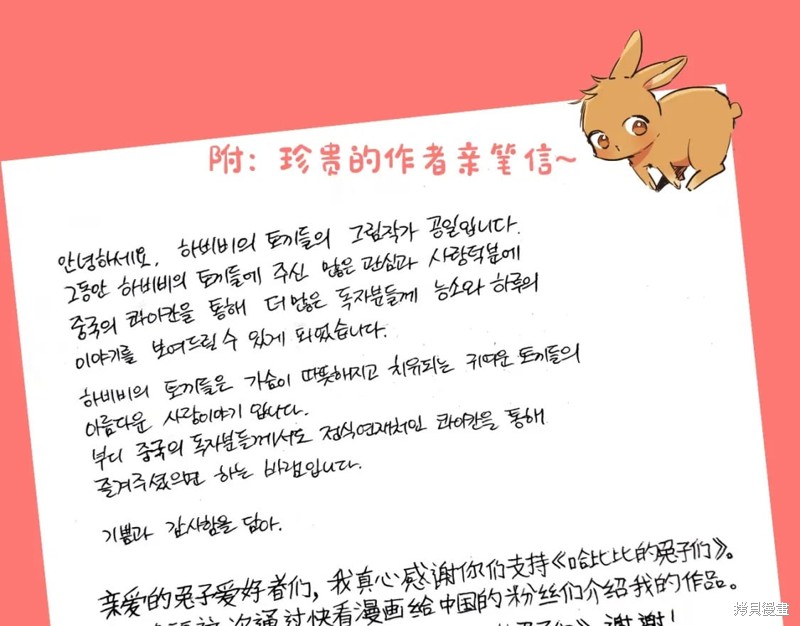 附：珍贵的作者亲笔信~
안녕하세요. 하비비의 토끼들의 그림작가 공일입니다.
그동안 하비비의 토끼들에 주신 많은 관심과 사랑덕분에
중국의 콰이칸을 통해 더많은 독자분들께 능소와 하루의
이야기를 보여드릴 수 있게 되었습니다.
하비비의 토끼들은 가슴이 따뜻해지고 치유되는 귀여운 토끼들의
아름다운 사랑이야기 입니다.
부디 중국의 독자분들께서도 정식연재처인 콰이칸을 통해
즐겨주셨으면 하는 바램입니다.
기쁨과 감사함을 담아.
亲爱的兔子爱好者们，我真心感谢你们支持《哈比比的兔子们》。
次通过快看漫画给中国的粉丝们介绍我的作品。
谢谢！
拷貝漫畫